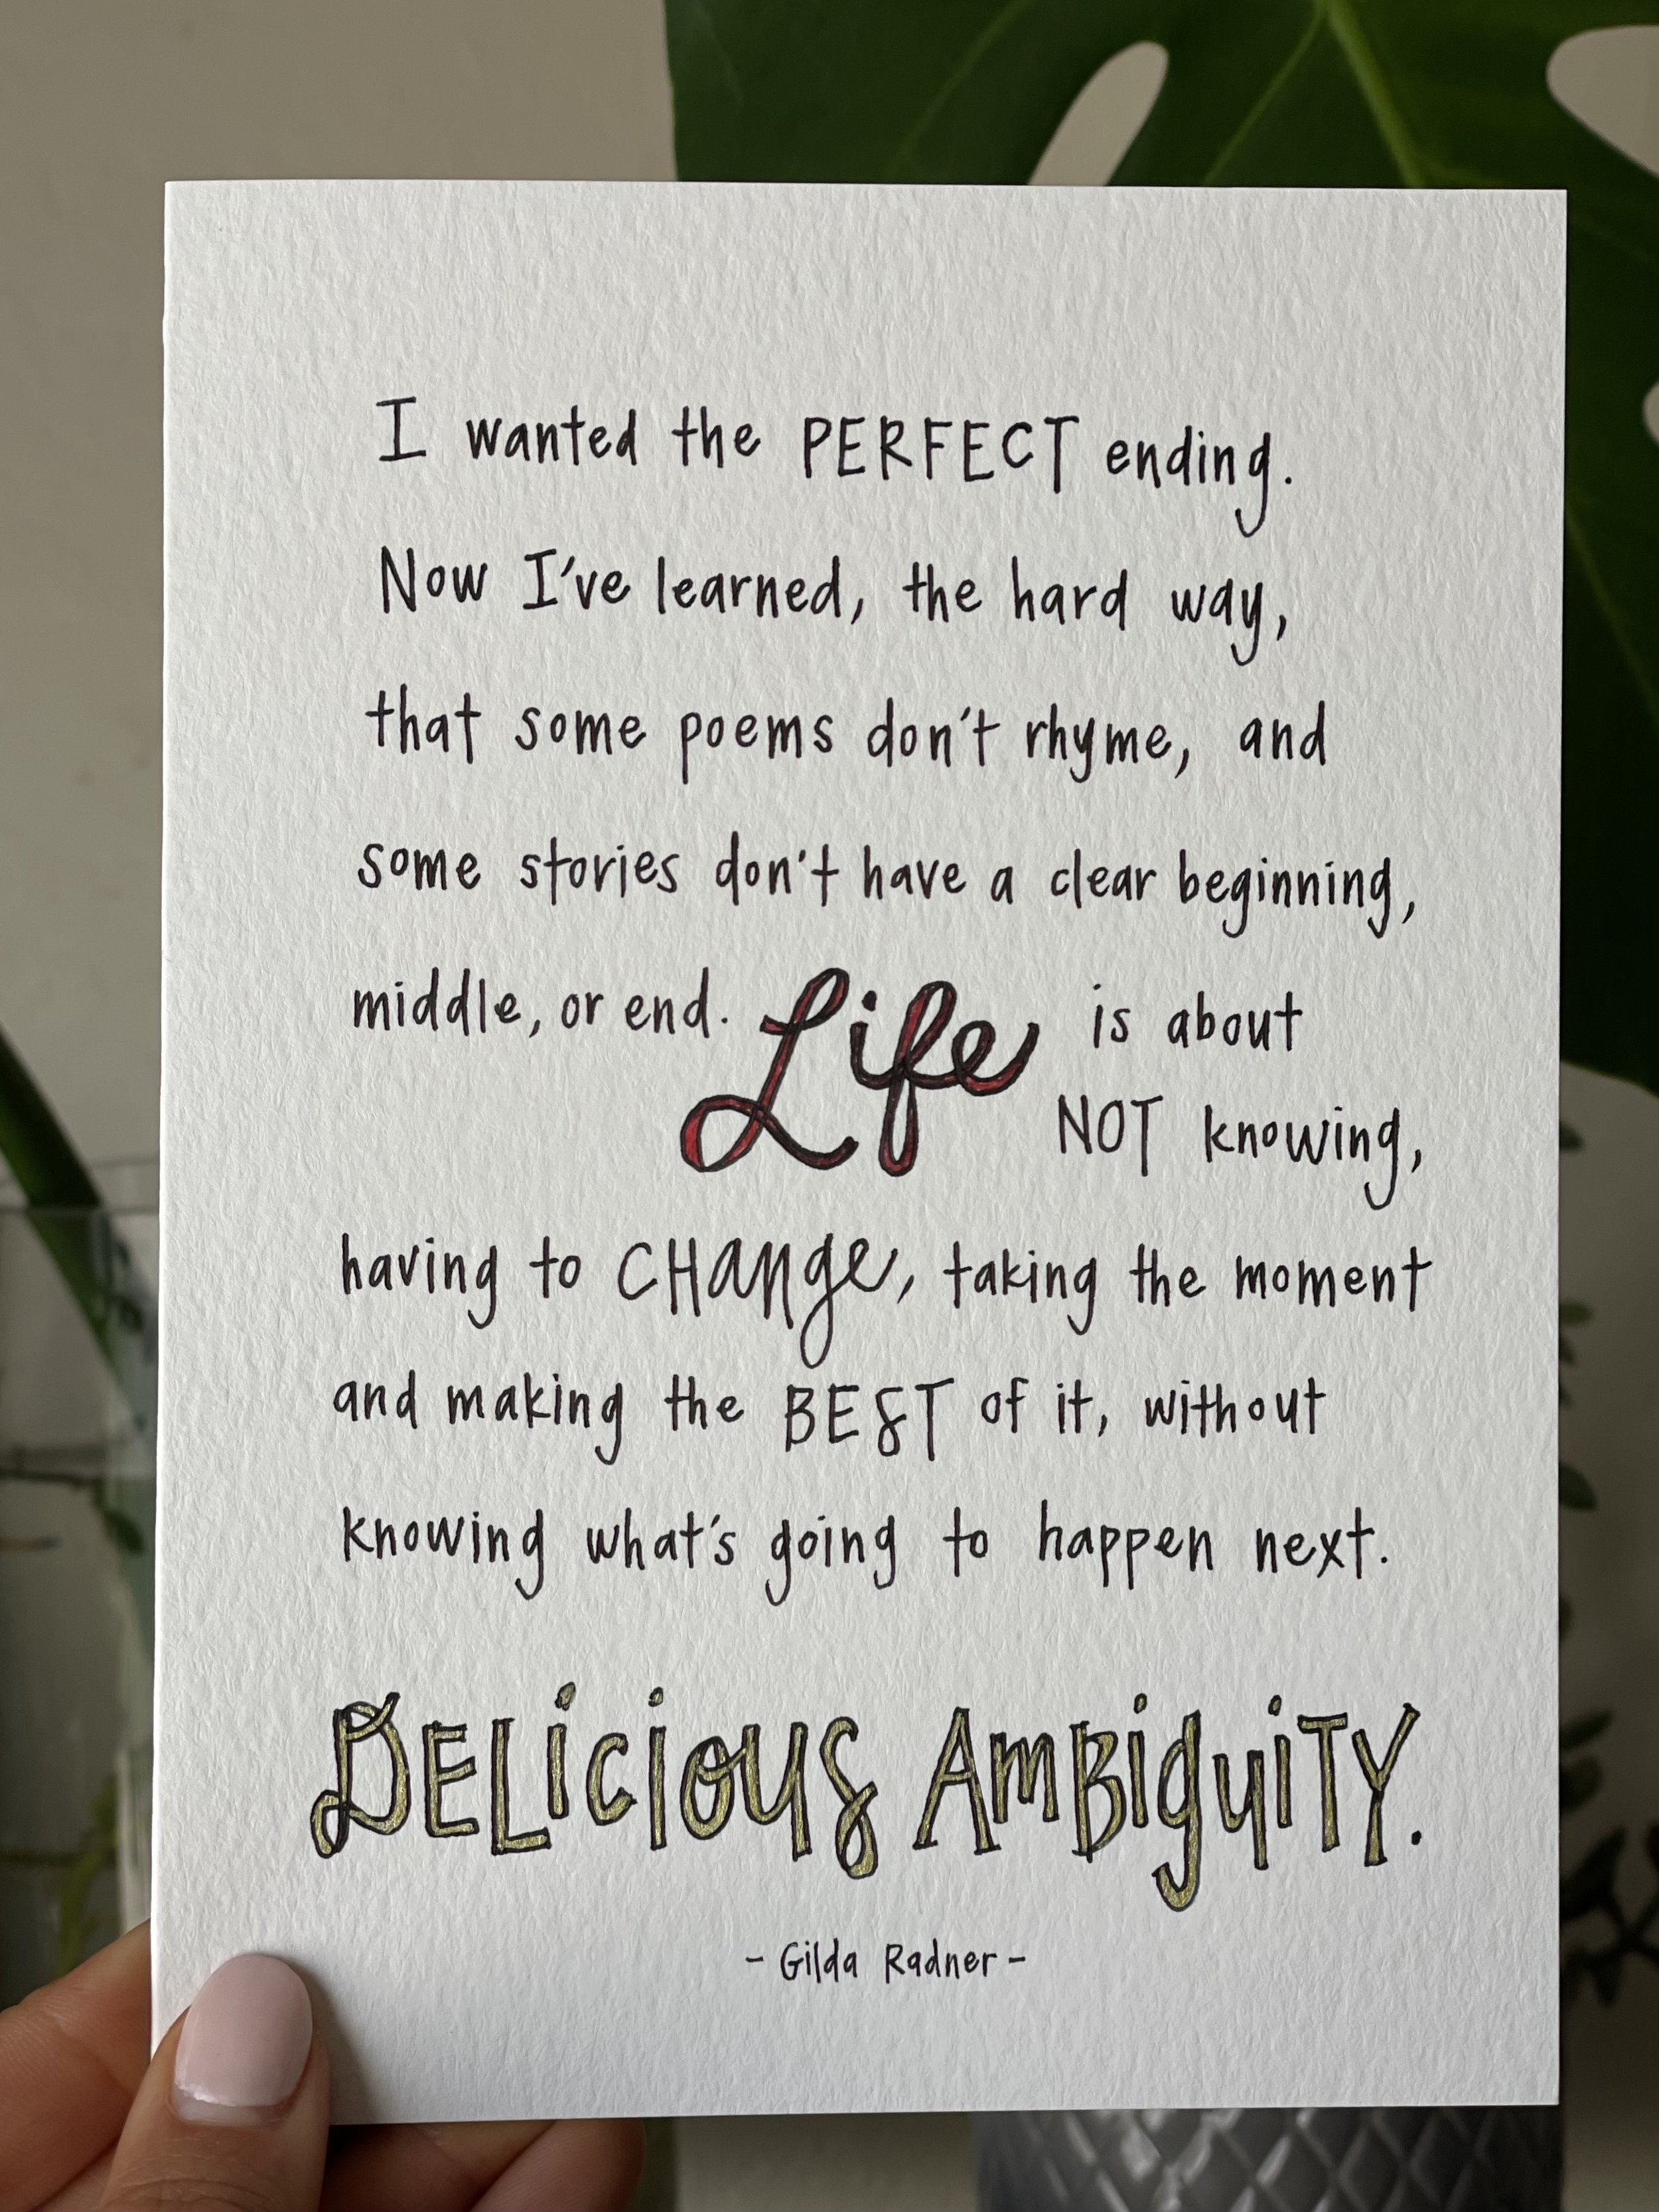 I wanted the PERFECT ending.
Now I've learned, the hard way,
that some poems don't rhyme, and
some stories don't have a clear beginning,
middle, or end. Life is about
NOT knowing,
having to CHange, taking the moment
and making the BEST of it, without
knowing what's going to happen next.
DELicious AmBiguiTY.
- Gilda Radner -